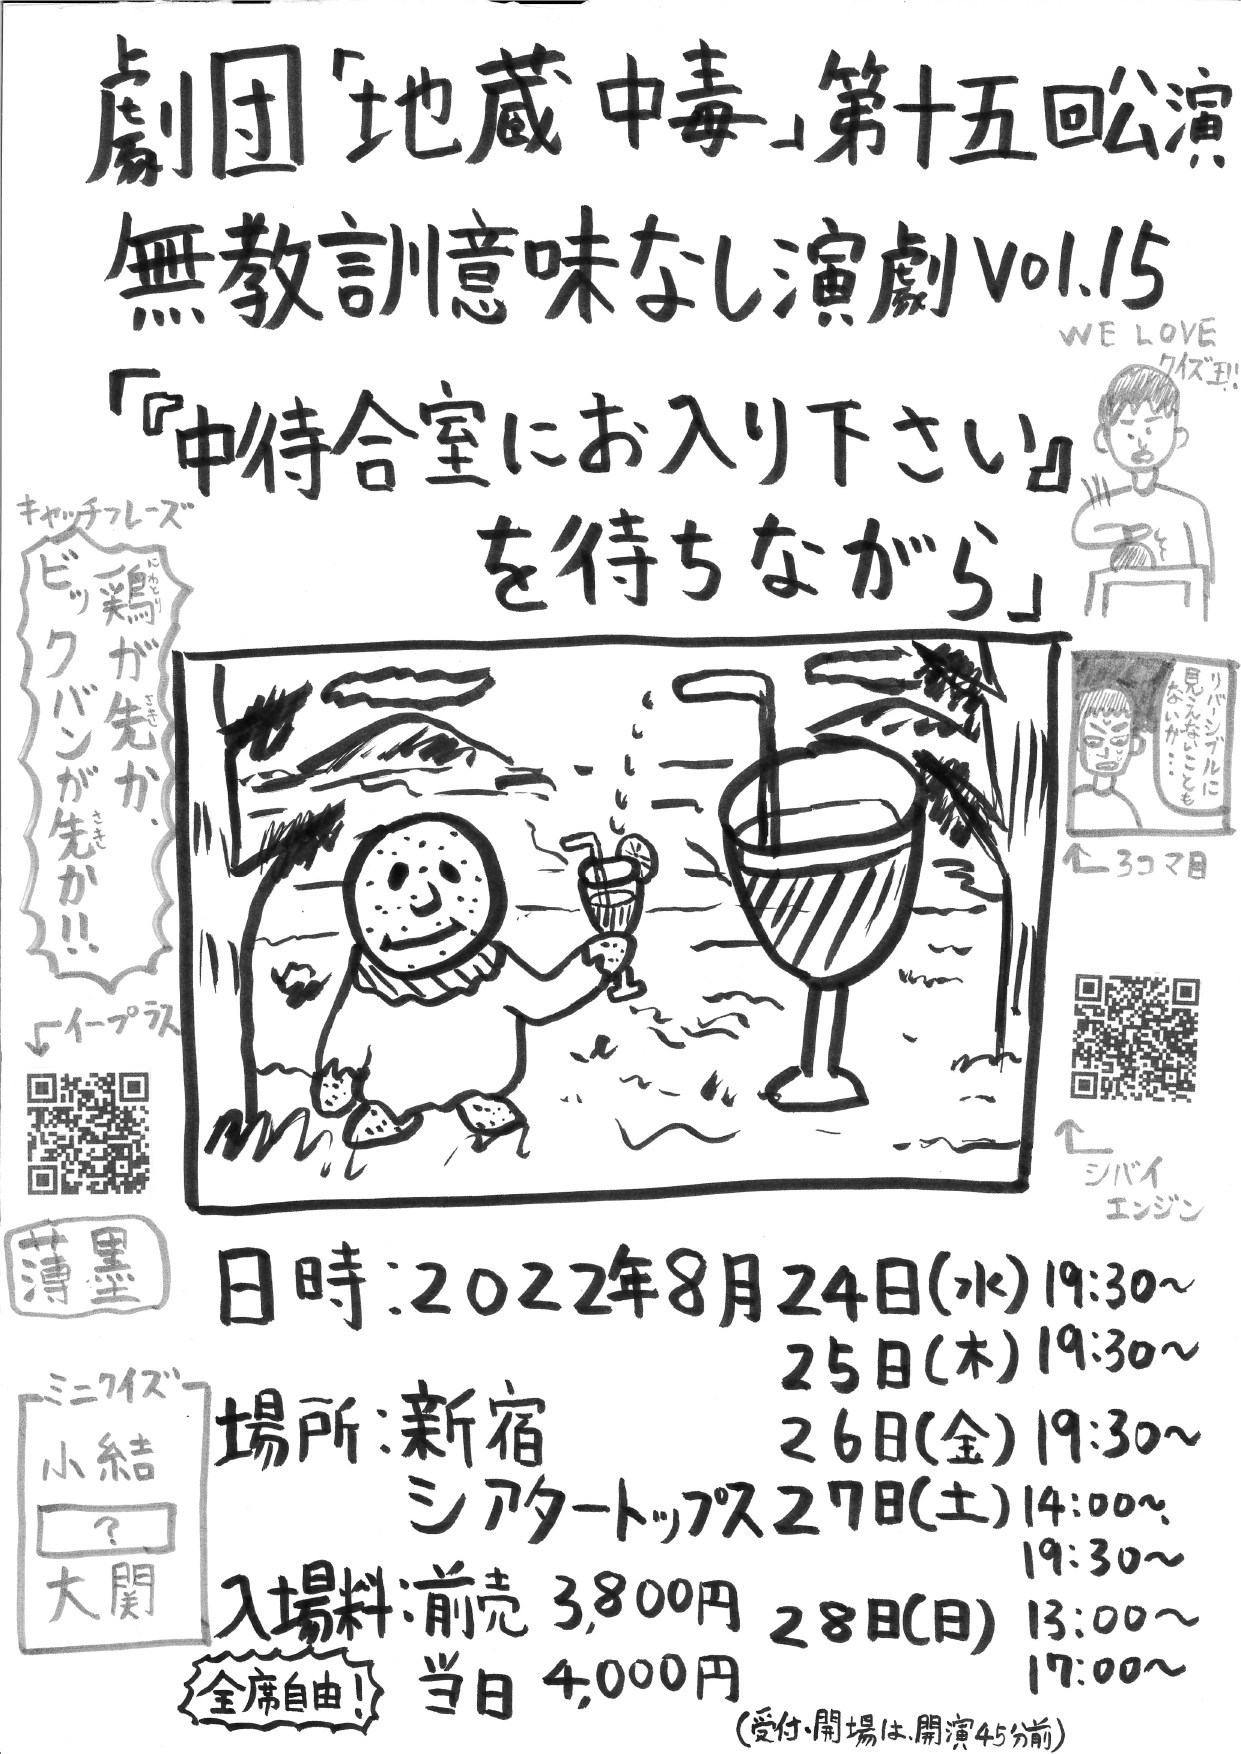 劇団「地蔵中毒」第十五回公演
無教訓意味なし演劇vol.15
WE LOVE
クイズ王!!
「『中待合室にお入り下さい』
を待ちながら」
キャッチフレーズ
鶏が先か、
にわとり
さき
ビックバンが先か!!
さき
リバーシブルに
見えないことも
ないが…
3コマ目
イープラス
シバイ
エンジン
薄墨
日時:2022年8月24日(水)19:30〜
25日(木)19:30〜
26日(金)19:30〜
27日(土)14:00〜、
19:30〜
28日(日)13:00〜
17:00〜
場所:新宿
シアタートップス
ミニクイズ
小結
?
大関
入場料:前売 3,800円
当日 4,000円
全席自由!
(受付・開場は、開演45分前)